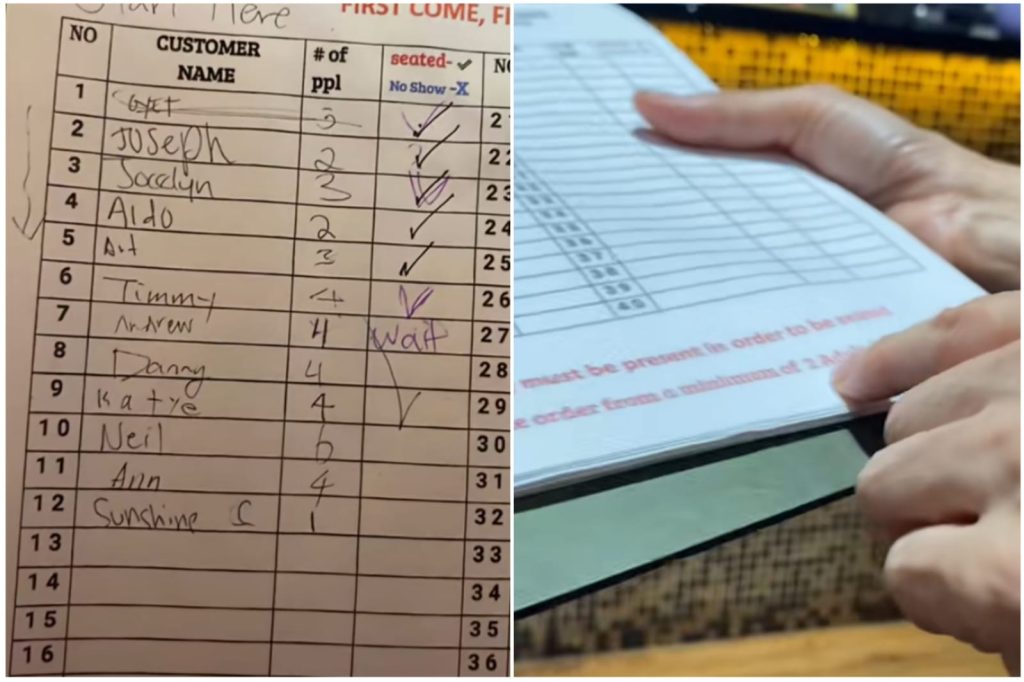 Start Here
FIRST COME, FI
NO CUSTOMER NAME # of ppl seated-✓ No Show -X N
1 3 ✓ 2
2 Joseph 2 ✓ 22
3 Jocelyn 3 ✓ 23
4 Aldo 2 ✓ 24
5 Art 3 ✓ 25
6 Timmy 4 ✓ 26
7 Andrew 4 Wait 27
8 Danny 4 28
9 Katye 4 ✓ 29
10 Neil 6 30
11 Ann 4 31
12 Sunshine C 1 32
13 33
14 34
15 35
16 36
37
38
39
40
must be present in order to be seated
e order from a minimum of 2 Adul